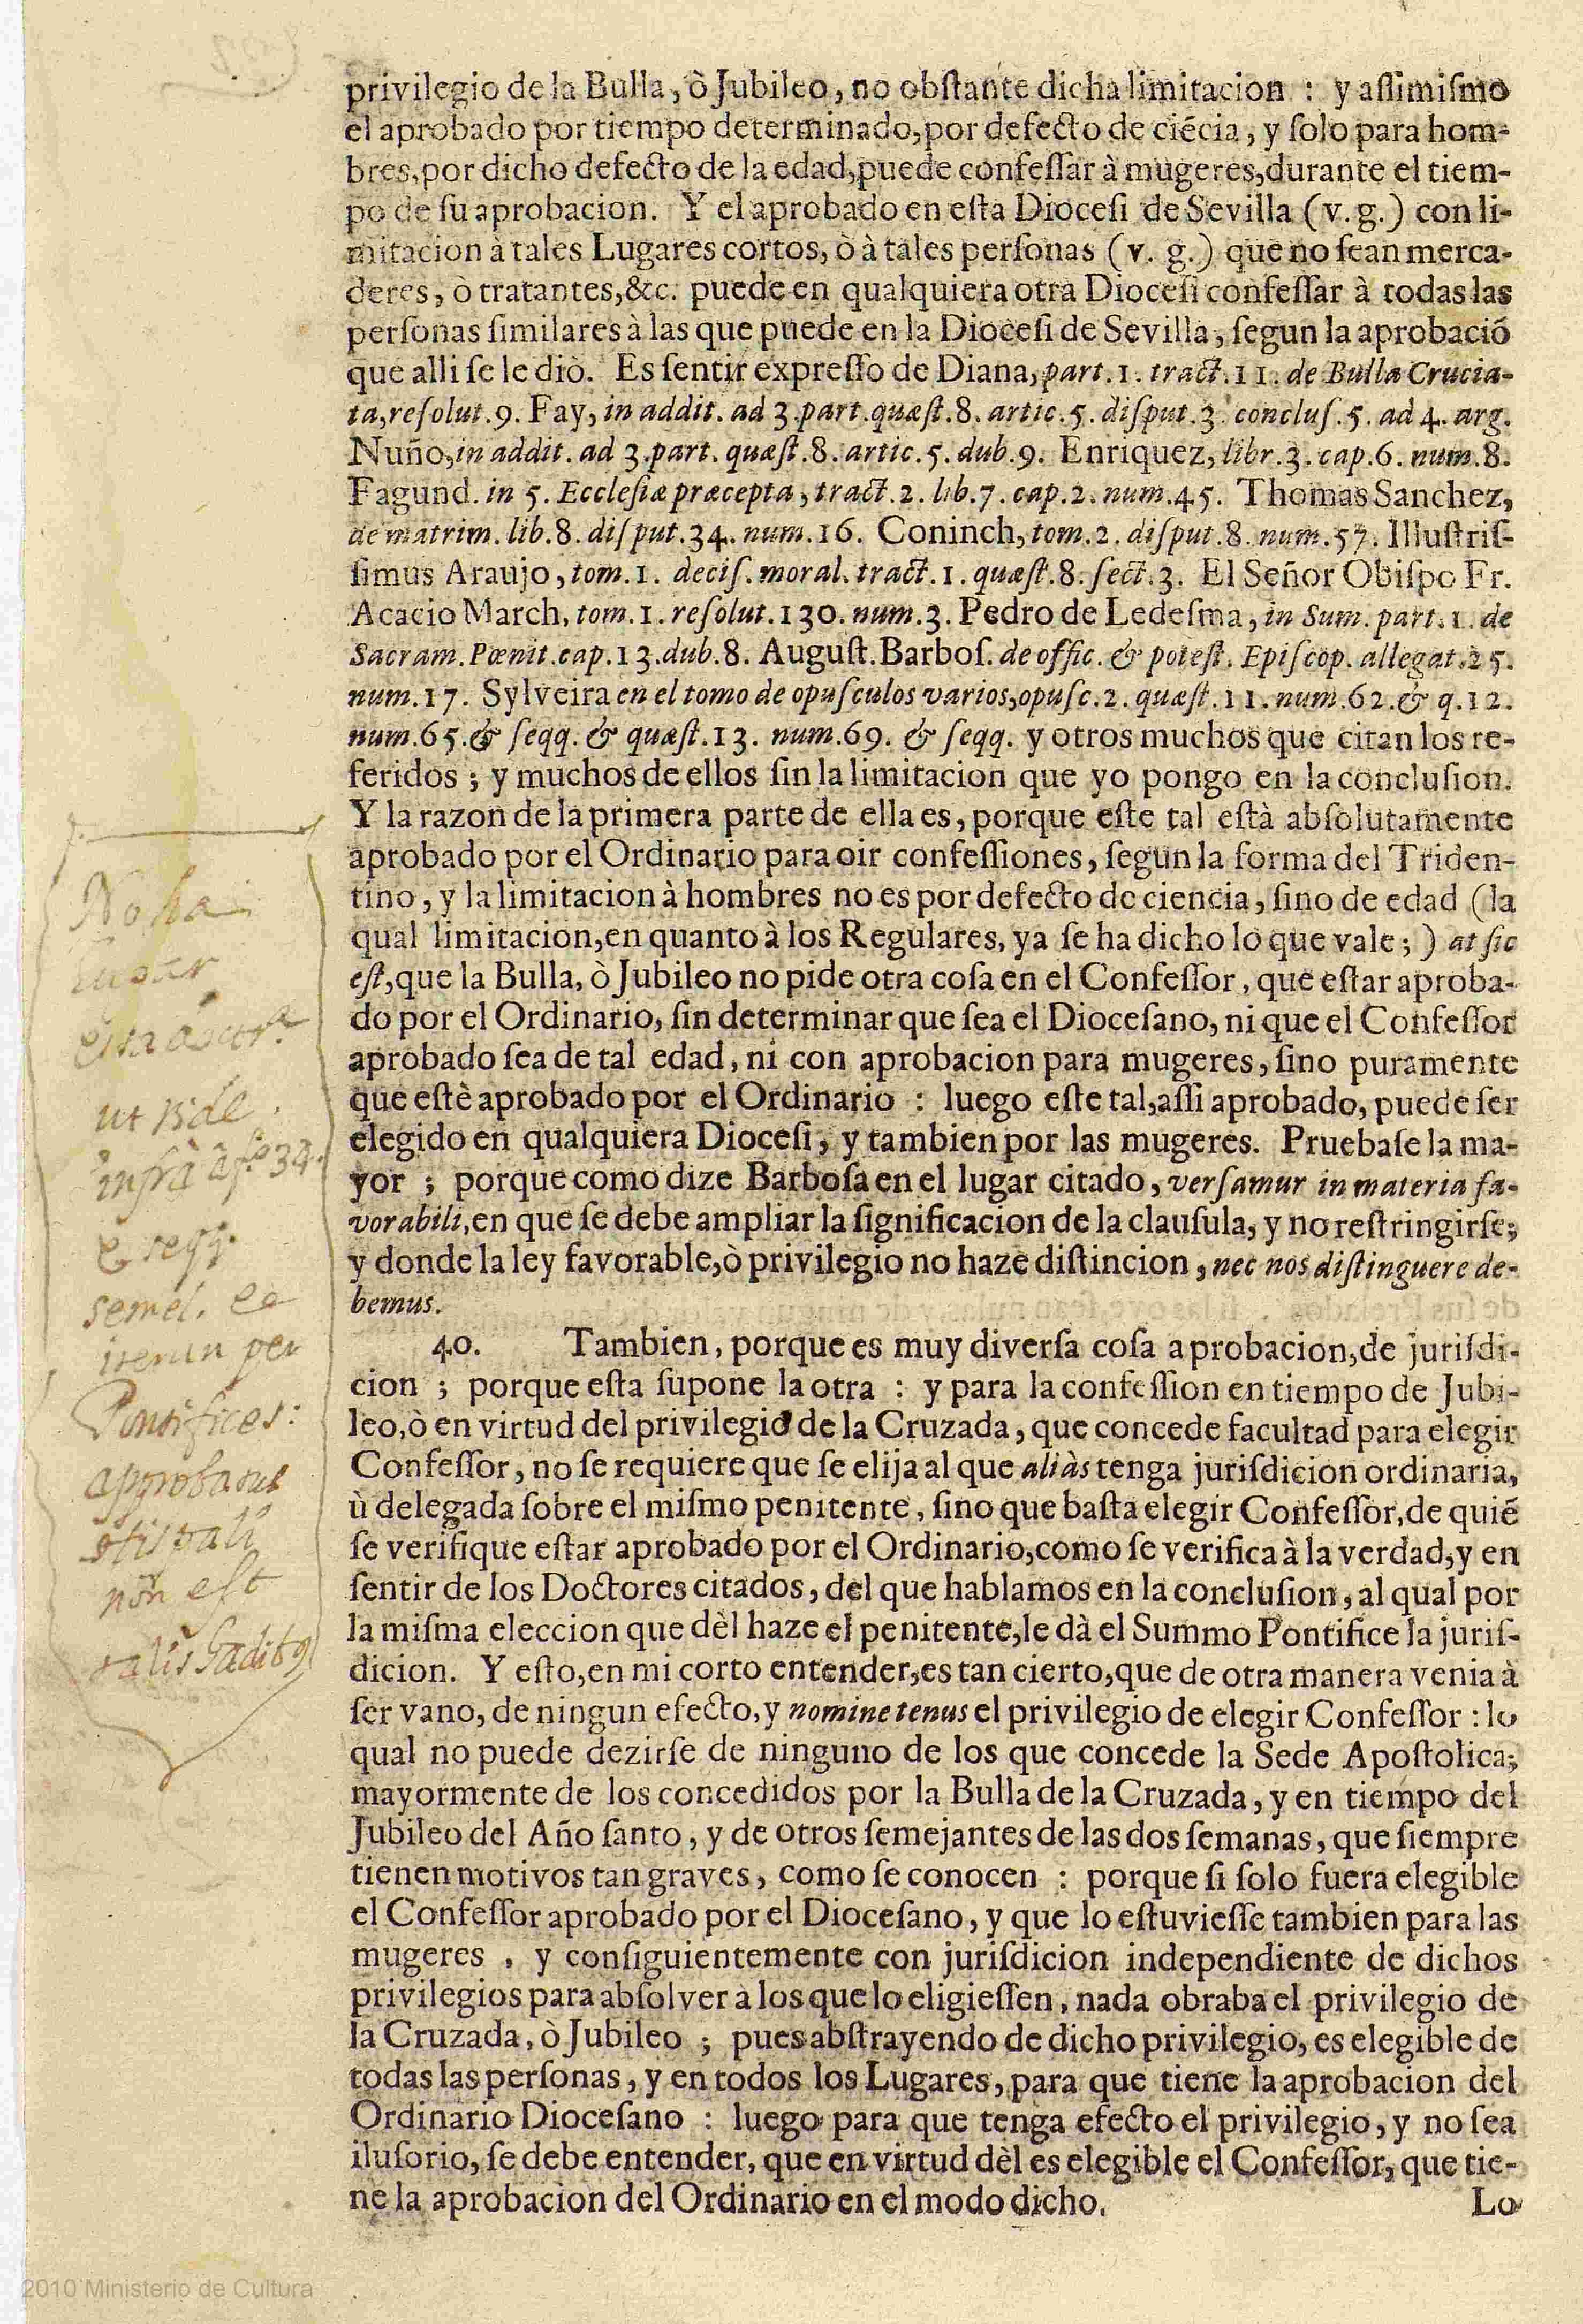 privilegio de la Bulla, ò Jubileo, no obſtante dicha limitacion : y aſſimiſmo
el aprobado por tiempo determinado, por defecto de ciẽcia, y ſolo para hom-
bres, por dicho defecto de la edad, puede confeſſar à mugeres, durante el tiem-
po de ſu aprobacion. Y el aprobado en eſta Dioceſi de Sevilla (v.g.) con li-
mitacion à tales Lugares cortos, ò à tales perſonas (v. g.) que no ſean merca-
deres, ò tratantes, &c. puede en qualquiera otra Dioceſi confeſſar à todas las
perſonas ſimilares à las que puede en la Dioceſi de Sevilla, ſegun la aprobaciõ
que alli ſe le diò. Es ſentir expreſſo de Diana, part.1. tract.11. de Bulla Crucia-
ta, reſolut.9. Fay, in addit. ad 3.part.quæſt.8. artic.5. diſput.3. concluſ.5. ad 4. arg.
Nuño, in addit. ad 3.part. quæſt.8. artic.5. dub.9. Enriquez, libr.3. cap.6. num.8.
Fagund. in 5. Eccleſiæ præcepta, tract.2. lib.7. cap.2. num.45. Thomas Sanchez,
de matrim. lib.8. diſput.34. num.16. Coninch, tom.2. diſput.8. num.57. Illuſtriſ-
ſimus Araujo, tom.1. deciſ. moral. tract.1. quæſt.8. ſect.3. El Señor Obiſpo Fr.
Acacio March, tom.1. reſolut.130. num.3. Pedro de Ledeſma, in Sum. part.1. de
Sacram. Pœnit. cap.13. dub.8. Auguſt. Barboſ. de offic. & poteſt. Epiſcop. allegat.25.
num.17. Sylveira en el tomo de opuſculos varios, opuſc.2. quæſt.11. num.62. & q.12.
num.65. & ſeqq. & quæſt.13. num.69. & ſeqq. y otros muchos que citan los re-
feridos ; y muchos de ellos ſin la limitacion que yo pongo en la concluſion.
Y la razon de la primera parte de ella es, porque eſte tal eſtà abſolutamente
aprobado por el Ordinario para oir confeſſiones, ſegun la forma del Triden-
tino, y la limitacion à hombres no es por defecto de ciencia, ſino de edad (la
qual limitacion, en quanto à los Regulares, ya ſe ha dicho lo que vale; ) at ſic
eſt, que la Bulla, ò Jubileo no pide otra coſa en el Confeſſor, que eſtar aproba-
do por el Ordinario, ſin determinar que ſea el Dioceſano, ni que el Confeſſor
aprobado ſea de tal edad, ni con aprobacion para mugeres, ſino puramente
que eſtè aprobado por el Ordinario : luego eſte tal, aſſi aprobado, puede ſer
elegido en qualquiera Dioceſi, y tambien por las mugeres. Pruebaſe la ma-
yor ; porque como dize Barboſa en el lugar citado, verſamur in materia fa-
vorabili, en que ſe debe ampliar la ſignificacion de la clauſula, y no reſtringirſe;
y donde la ley favorable, ò privilegio no haze diſtincion, nec nos diſtinguere de-
bemus.
40. Tambien, porque es muy diverſa coſa aprobacion, de juriſdi-
cion ; porque eſta ſupone la otra : y para la confeſſion en tiempo de Jubi-
leo, ò en virtud del privilegio de la Cruzada, que concede facultad para elegir
Confeſſor, no ſe requiere que ſe elija al que aliàs tenga juriſdicion ordinaria,
ù delegada ſobre el miſmo penitente, ſino que baſta elegir Confeſſor, de quiẽ
ſe verifique eſtar aprobado por el Ordinario, como ſe verifica à la verdad, y en
ſentir de los Doctores citados, del que hablamos en la concluſion, al qual por
la miſma eleccion que dèl haze el penitente, le dà el Summo Pontifice la juriſ-
dicion. Y eſto, en mi corto entender, es tan cierto, que de otra manera venia à
ſer vano, de ningun efecto, y nomine tenus el privilegio de elegir Confeſſor : lo
qual no puede dezirſe de ninguno de los que concede la Sede Apoſtolica;
mayormente de los concedidos por la Bulla de la Cruzada, y en tiempo del
Jubileo del Año ſanto, y de otros ſemejantes de las dos ſemanas, que ſiempre
tienen motivos tan graves, como ſe conocen : porque ſi ſolo fuera elegible
el Confeſſor aprobado por el Dioceſano, y que lo eſtuvieſſe tambien para las
mugeres , y conſiguientemente con juriſdicion independiente de dichos
privilegios para abſolver à los que lo eligieſſen, nada obraba el privilegio de
la Cruzada, ò Jubileo ; pues abſtrayendo de dicho privilegio, es elegible de
todas las perſonas, y en todos los Lugares, para que tiene la aprobacion del
Ordinario Dioceſano : luego para que tenga efecto el privilegio, y no ſea
iluſorio, ſe debe entender, que en virtud dèl es elegible el Confeſſor, que tie-
ne la aprobacion del Ordinario en el modo dicho.
Lo
No ha
lugar
ut vide
infrà
& seqq.
semel, ee
iterum per
Pontifices:
aprobatus
Hispali
non est
talis Gadib9
2010 Ministerio de Cultura